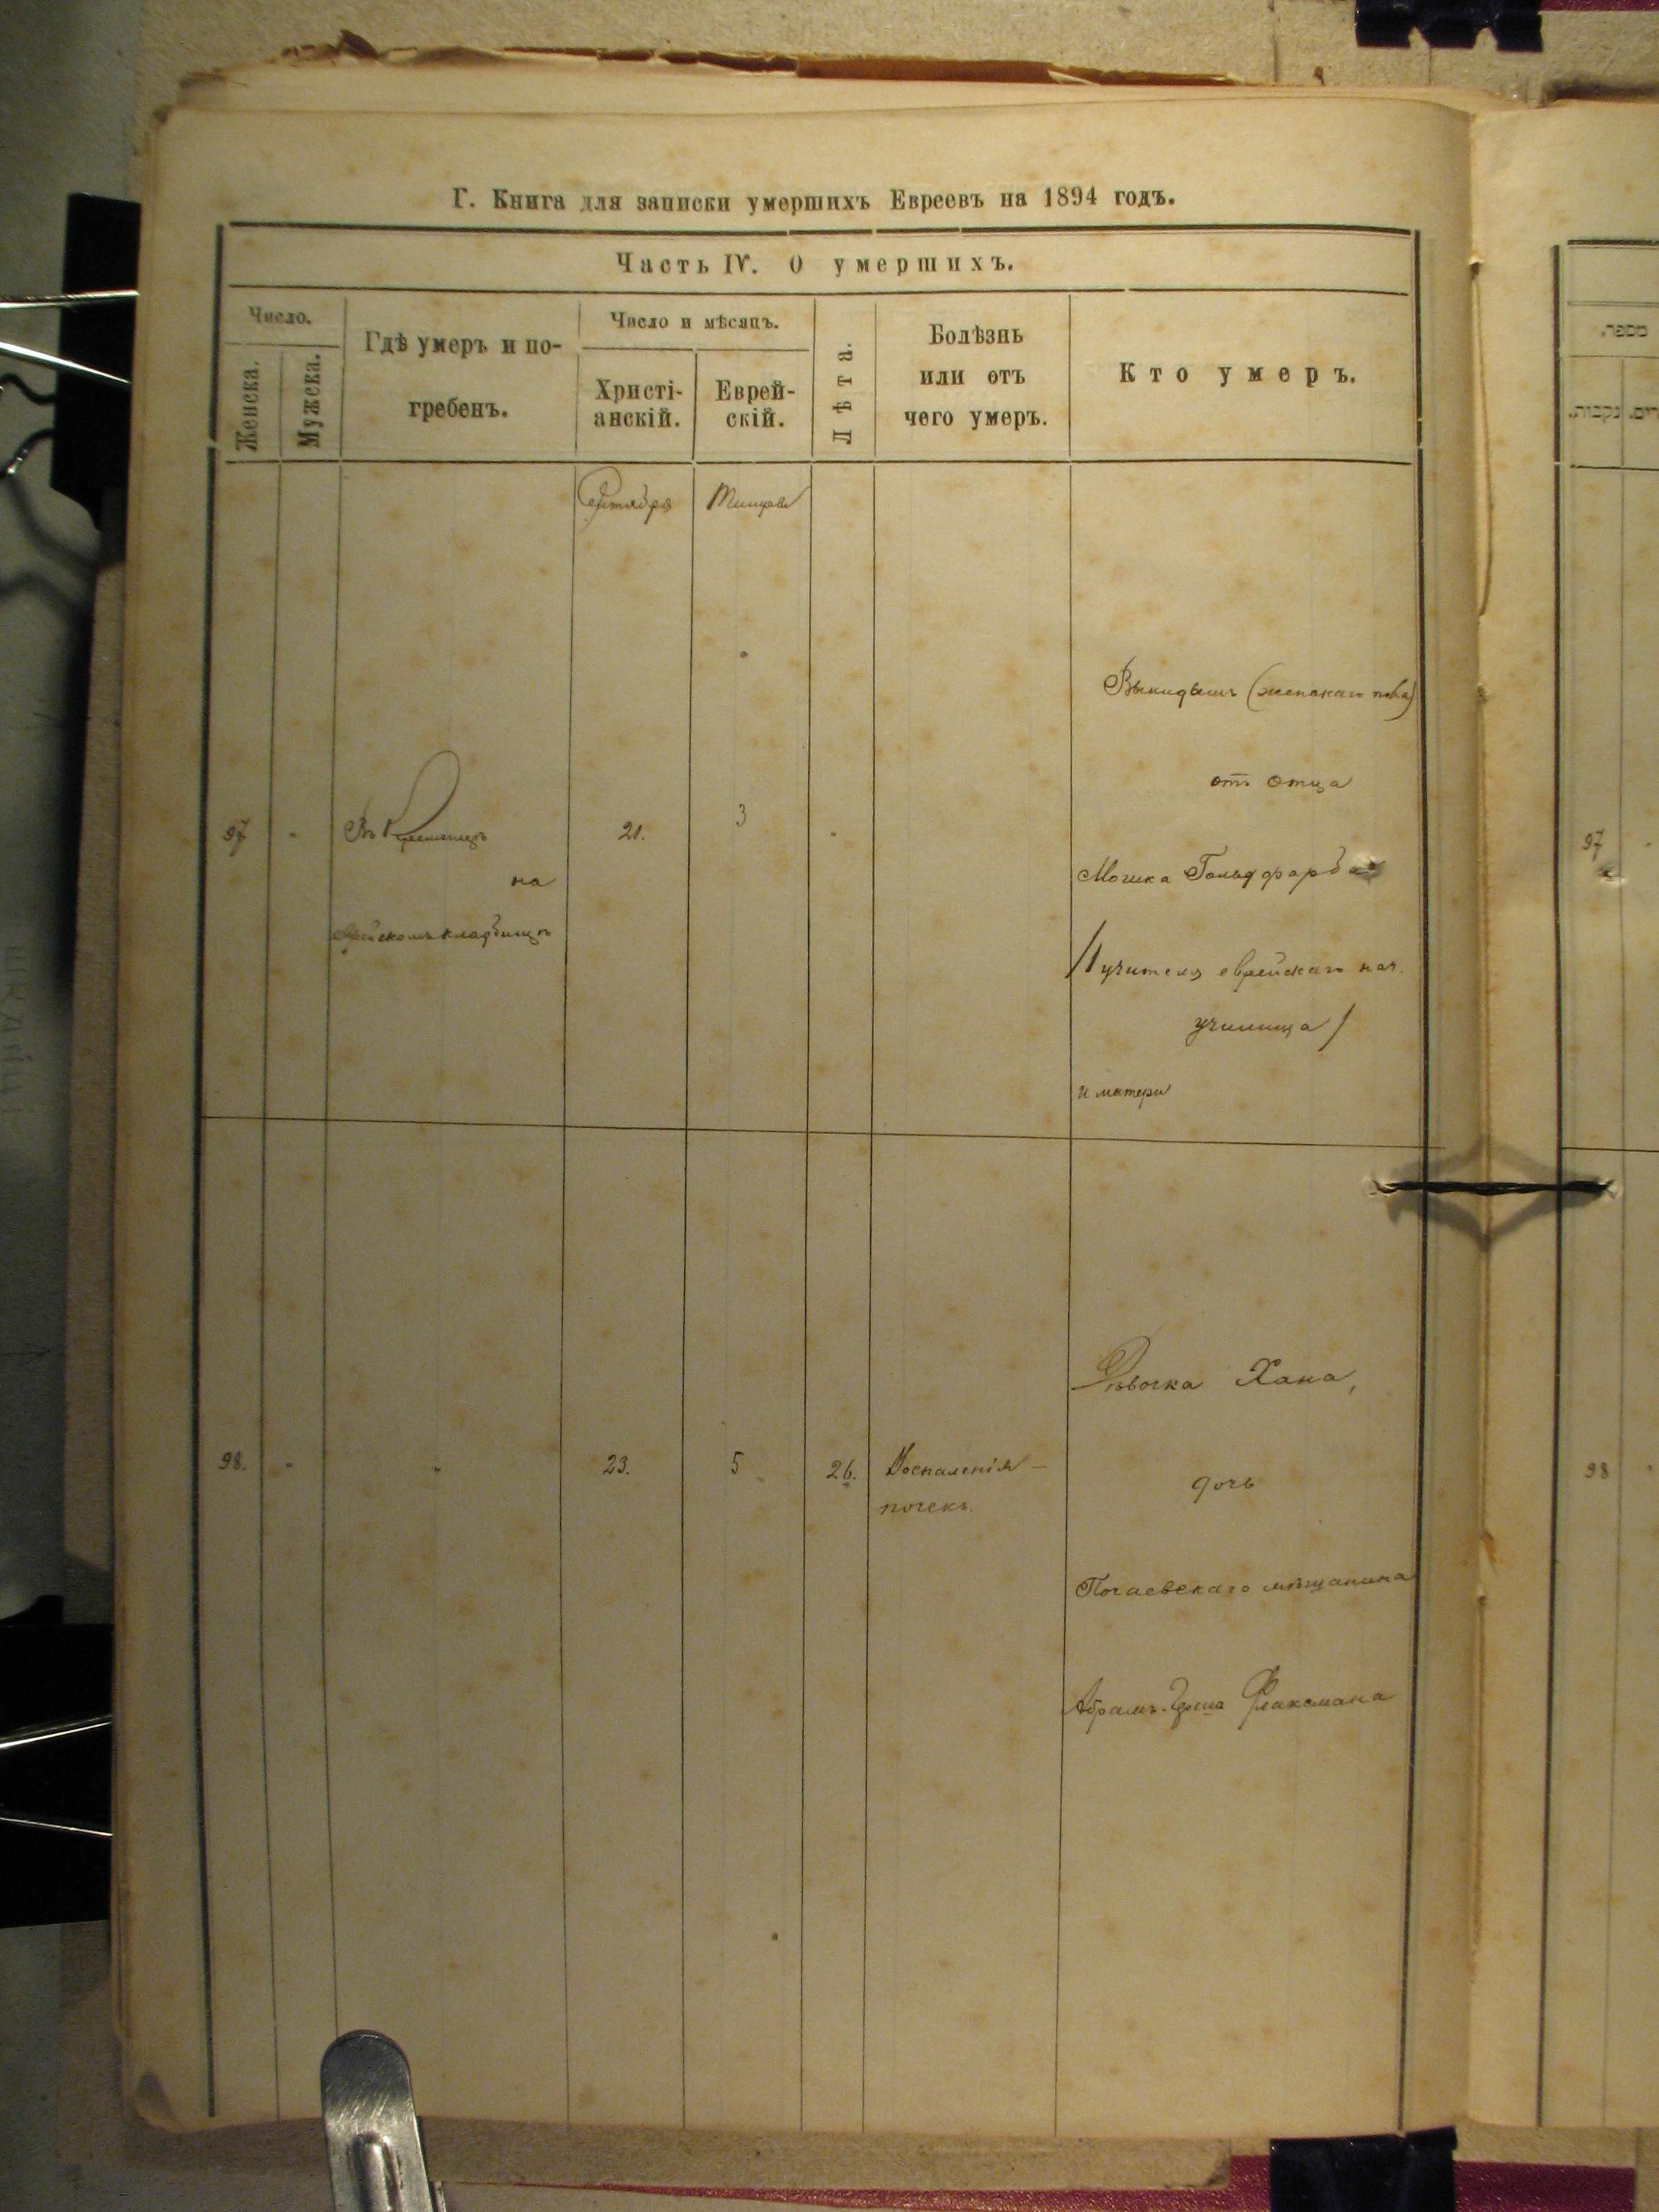 Г. Книга для записки умершихъ Евреевъ на 1894 годъ.
Часть IV. О умершихъ.
Число.
Женска.
Мужска.
Гдѣ умеръ и по-
гребенъ.
Число и мѣсяцъ.
Христі-
анскій.
Еврей-
скій.
Лѣта.
Болѣзнь
или отъ
чего умеръ.
Кто умеръ.
Сентября
Тишрей
97
Въ Кременцѣ
на
еврейскомъ кладбищѣ
21.
3
Выкидышъ (женскаго пола)
отъ отца
Мошка Гольдфарба
/учителя еврейскаго нач.
училища/
и матери
98.
23.
5
26.
Воспаленія
почекъ.
Дѣвочка Хана,
дочь
Почаевскаго мѣщанина
Абрамъ-Герша Флаксмана
מספר.
נקבות.
97
98